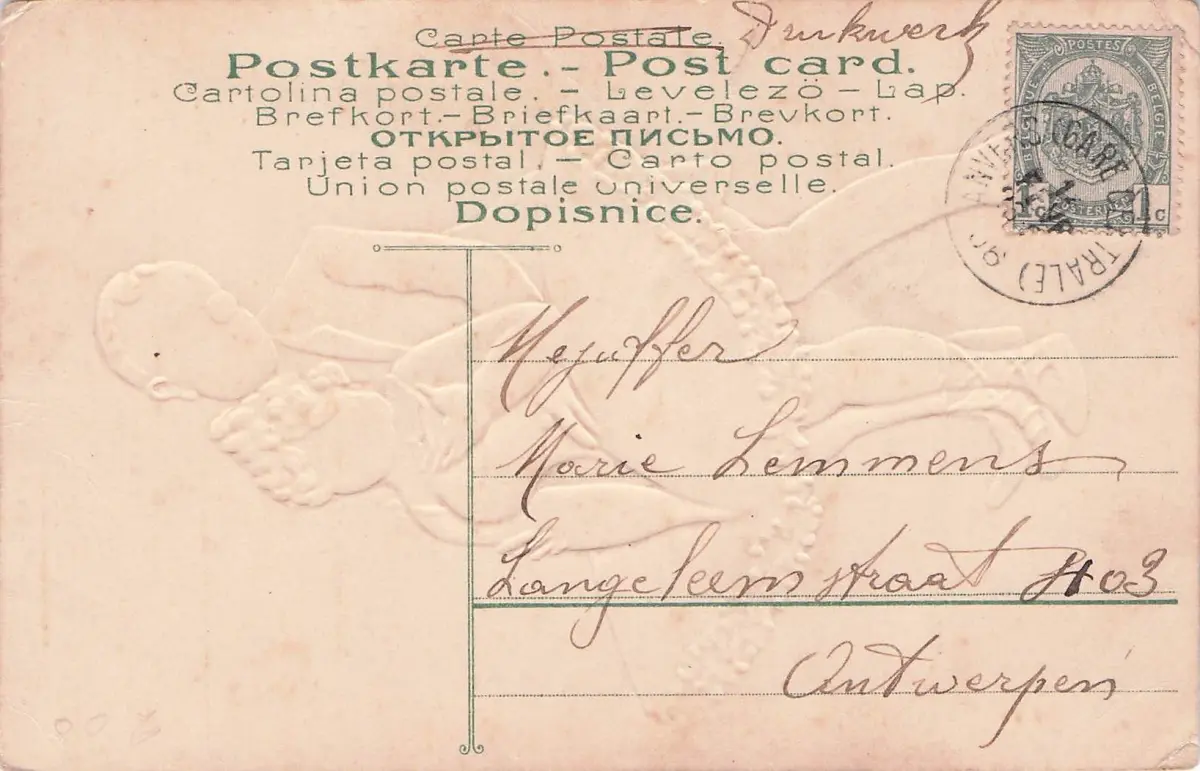 Carte Postale. Drukwerk
Postkarte.- Post card.
Cartolina postale. - Levelezö-Lap.
Brefkort.-Briefkaart.-Brevkort.
ОТКРЫТОЕ ПИСЬМО.
Tarjeta postal. - Carto postal.
Union postale universelle.
Dopisnice.
POSTES
BELGIQUE BELGIE
POSTERIJEN
1 1c
ANVERS (GARE CENTRALE)
Mejuffer
Marie Lemmens
Langeleemstraat 403
Antwerpen